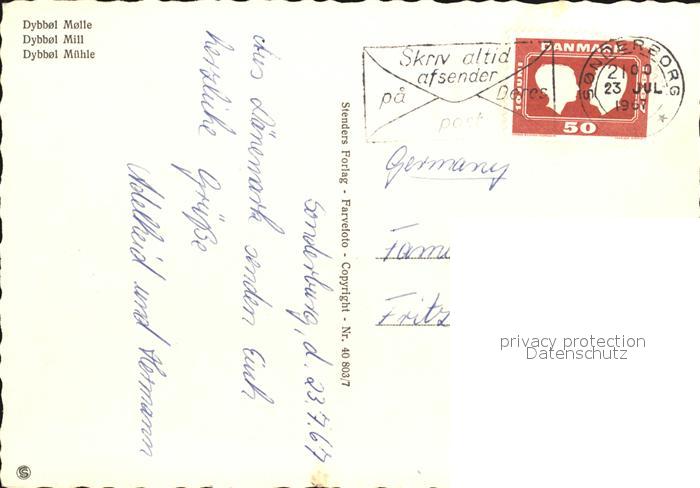 Dybbøl Mølle
Dybbøl Mill
Dybbøl Mühle
Sonderburg, d. 23.7.67
Aus Dänemark senden Euch
herzliche Grüße
Adelheid und Hermann
Stenders Forlag - Farvefoto - Copyright - Nr. 40 803/7
Skriv altid
afsender
på Deres
post
DANMARK
10 JUNI
50
SØNDERBORG
21 00
23 JUL
Germany
Fritz
privacy protection
Datenschutz
S